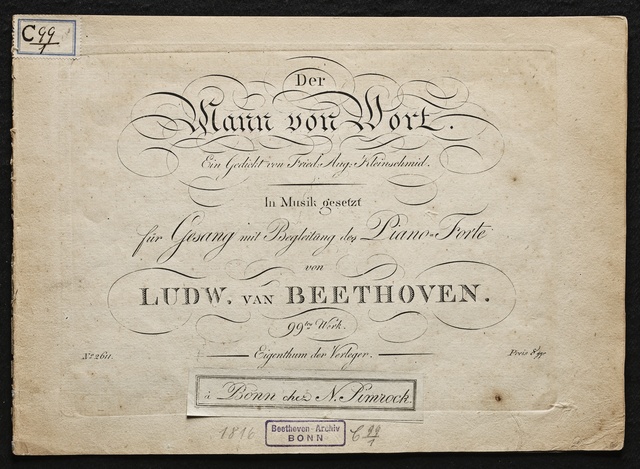 C 99/1
Der
Mann von Wort.
Ein Gedicht von Fried. Aug. Kleinschmid.
In Musik gesetzt
für Gesang mit Begleitung des Piano-Forte
von
LUDW. VAN BEETHOVEN.
99tes Werk.
Eigenthum der Verleger.
à Bonn chez N. Simrock.
1816
Beethoven-Archiv
BONN
C 99/1